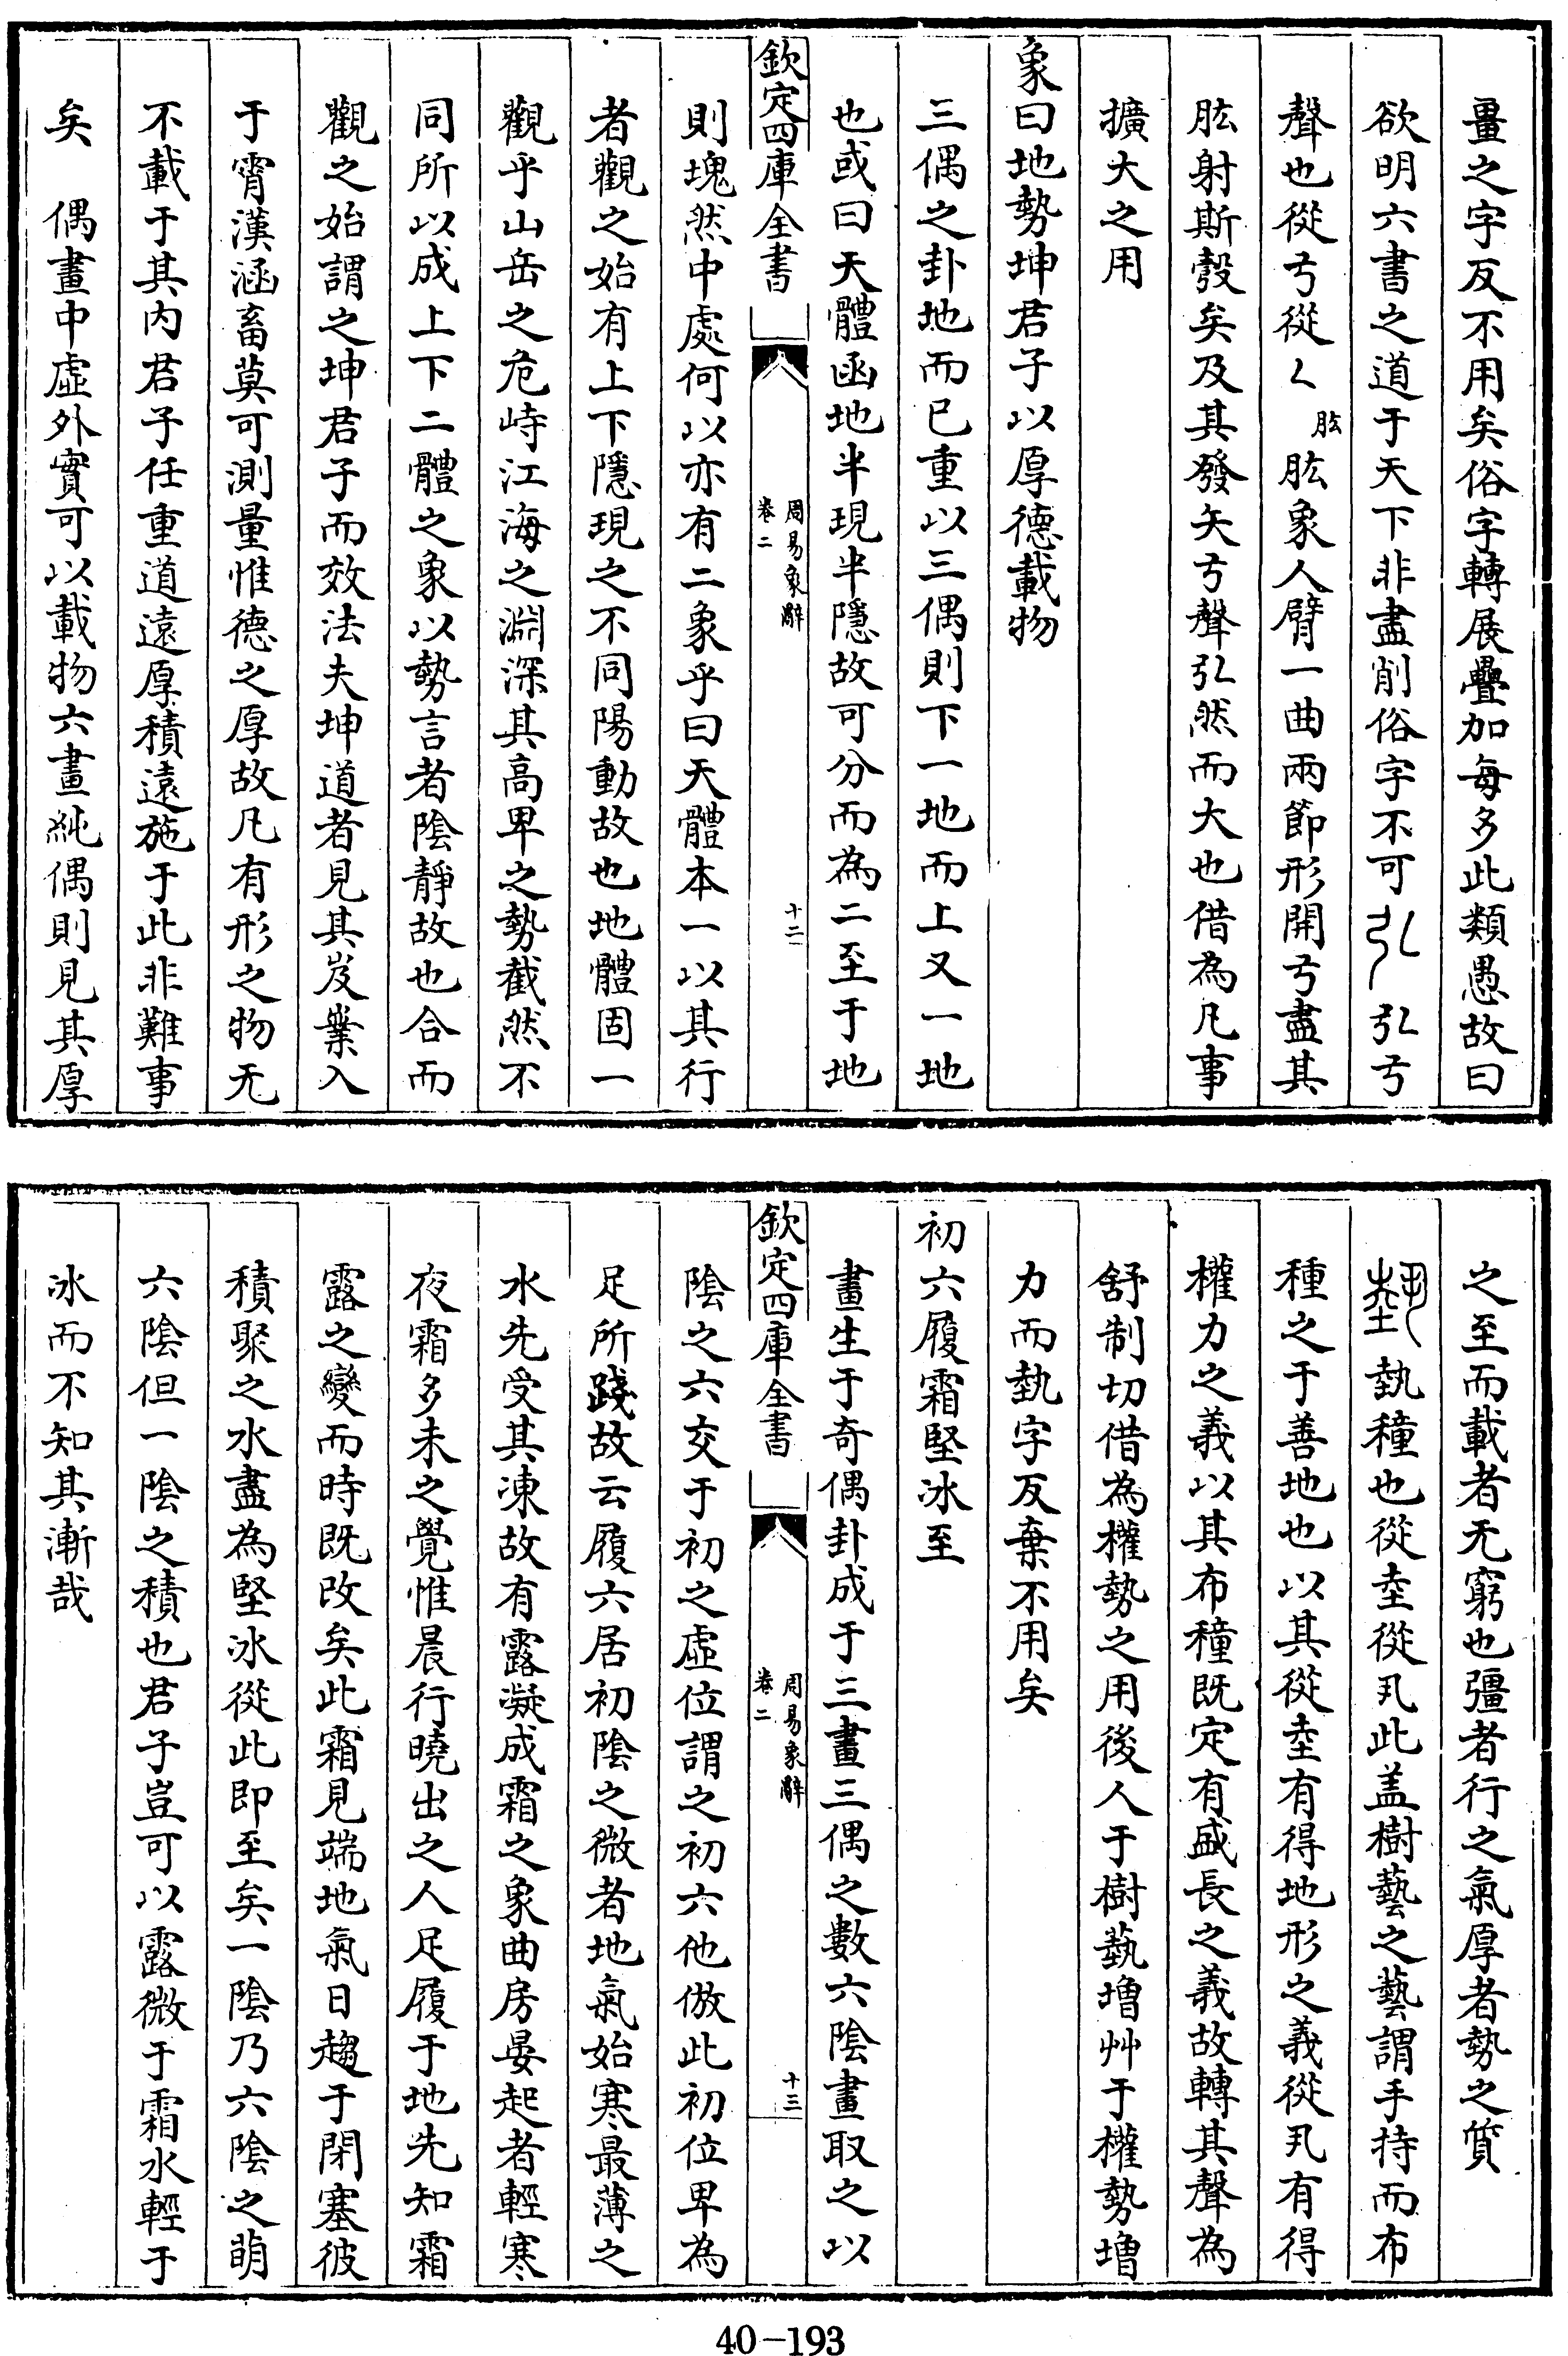 畺之字反不用矣俗字轉展疊加每多此類愚故曰
欲明六書之道于天下非盡削俗字不可弘弘丂
聲也從丂從ㄑ肱肱象人臂一曲兩節形開丂盡其
肱射斯彀矣及其發矢丂聲弘然而大也借為凡事
擴大之用
象曰地勢坤君子以厚德載物
三偶之卦地而已重以三偶則下一地而上又一地
也或曰天體函地半現半隱故可分而為二至于地
欽定四庫全書
周易象辭
卷二
十二
則塊然中處何以亦有二象乎曰天體本一以其行
者觀之始有上下隱現之不同陽動故也地體固一
觀乎山岳之危峙江海之淵深其高卑之勢截然不
同所以成上下二體之象以勢言者陰靜故也合而
觀之始謂之坤君子而效法夫坤道者見其岌嶪入
于霄漢涵畜莫可測量惟德之厚故凡有形之物无
不載于其內君子任重道遠厚積遠施于此非難事
矣　偶畫中虛外實可以載物六畫純偶則見其厚
之至而載者无窮也彊者行之氣厚者勢之質
埶種也從坴從丮此盖樹藝之藝謂手持而布
種之于善地也以其從坴有得地形之義從丮有得
權力之義以其布種既定有盛長之義故轉其聲為
舒制切借為權勢之用後人于樹蓺增艸于權勢增
力而埶字反棄不用矣
初六履霜堅冰至
畫生于奇偶卦成于三畫三偶之數六陰畫取之以
欽定四庫全書
周易象辭
卷二
十三
陰之六交于初之虛位謂之初六他倣此初位卑為
足所踐故云履六居初陰之微者地氣始寒最薄之
水先受其凍故有露凝成霜之象曲房晏起者輕寒
夜霜多未之覺惟晨行曉出之人足履于地先知霜
露之變而時既改矣此霜見端地氣日趨于閉塞彼
積聚之水盡為堅冰從此即至矣一陰乃六陰之萌
六陰但一陰之積也君子豈可以露微于霜水輕于
冰而不知其漸哉
40-193